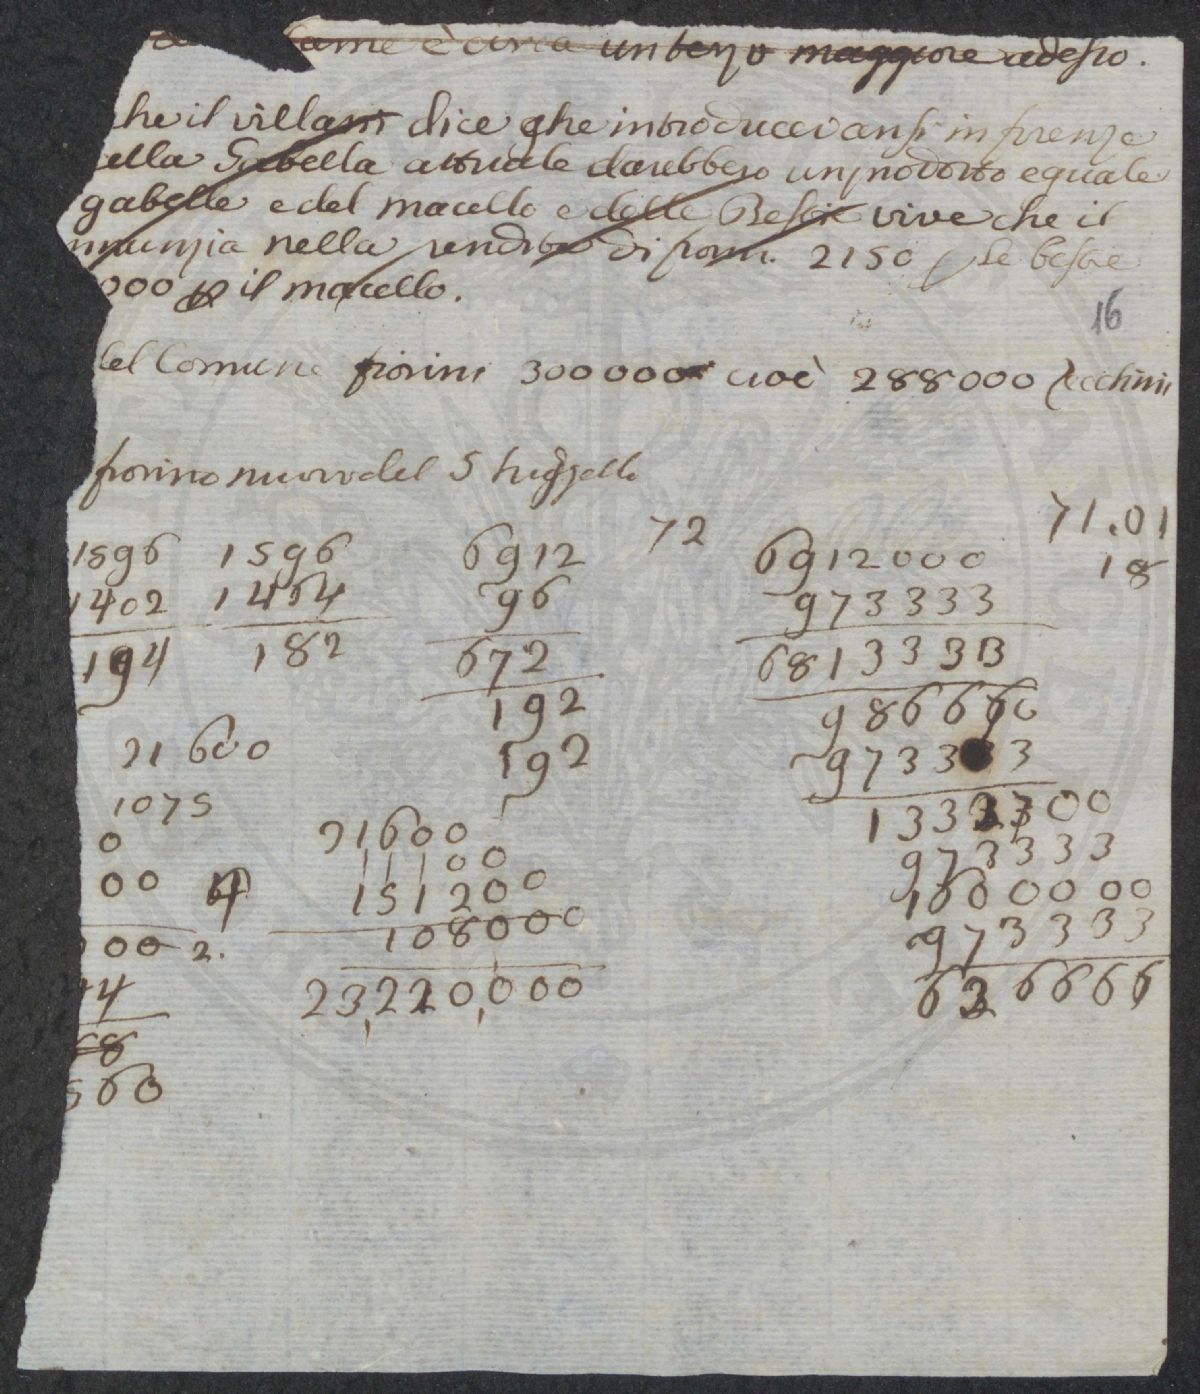 carne è circa un terzo maggiore adesso.
che il Villani dice che introducevansi in firenze
alla Gabella attuale darebbero un prodotto eguale
gabelle e del macello e delle Bestie vive che il
nunzia nella rendita di fiorini 2150 le bestie
000 il macello.
16
del Comune fiorini 300000 cioè 288000 Zecchini
fiorino nuovo del 5 Ruspello
1596 1596 6912 72 6912000 71.01
1402 1464 96 973333 18
194 182 672 6813333
192 986660
21600 192 973333
1075 1333300
0 21600 973333
11100
00 4 151200 1000000
00 2. 108000 973333
4 23,220,000 626666
68
560